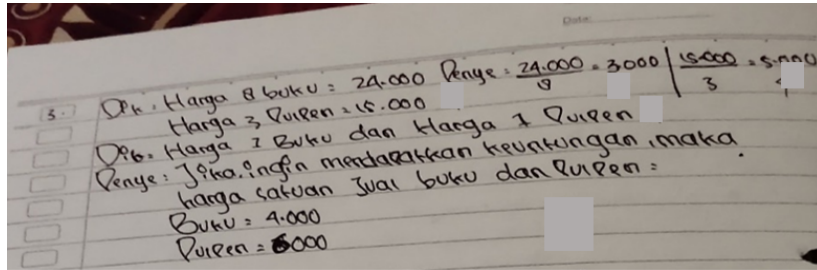 Date:
3. Dik. Harga 8 buku : 24.000 Penye : 24.000 / 8 = 3000 | 15.000 / 3 = 5.000
Harga 3 Pulpen = 15.000
Dit. Harga 1 Buku dan Harga 1 Pulpen
Penye : Jika ingin mendapatkan keuntungan, maka
harga satuan Jual buku dan Pulpen :
Buku = 4.000
Pulpen = 6000